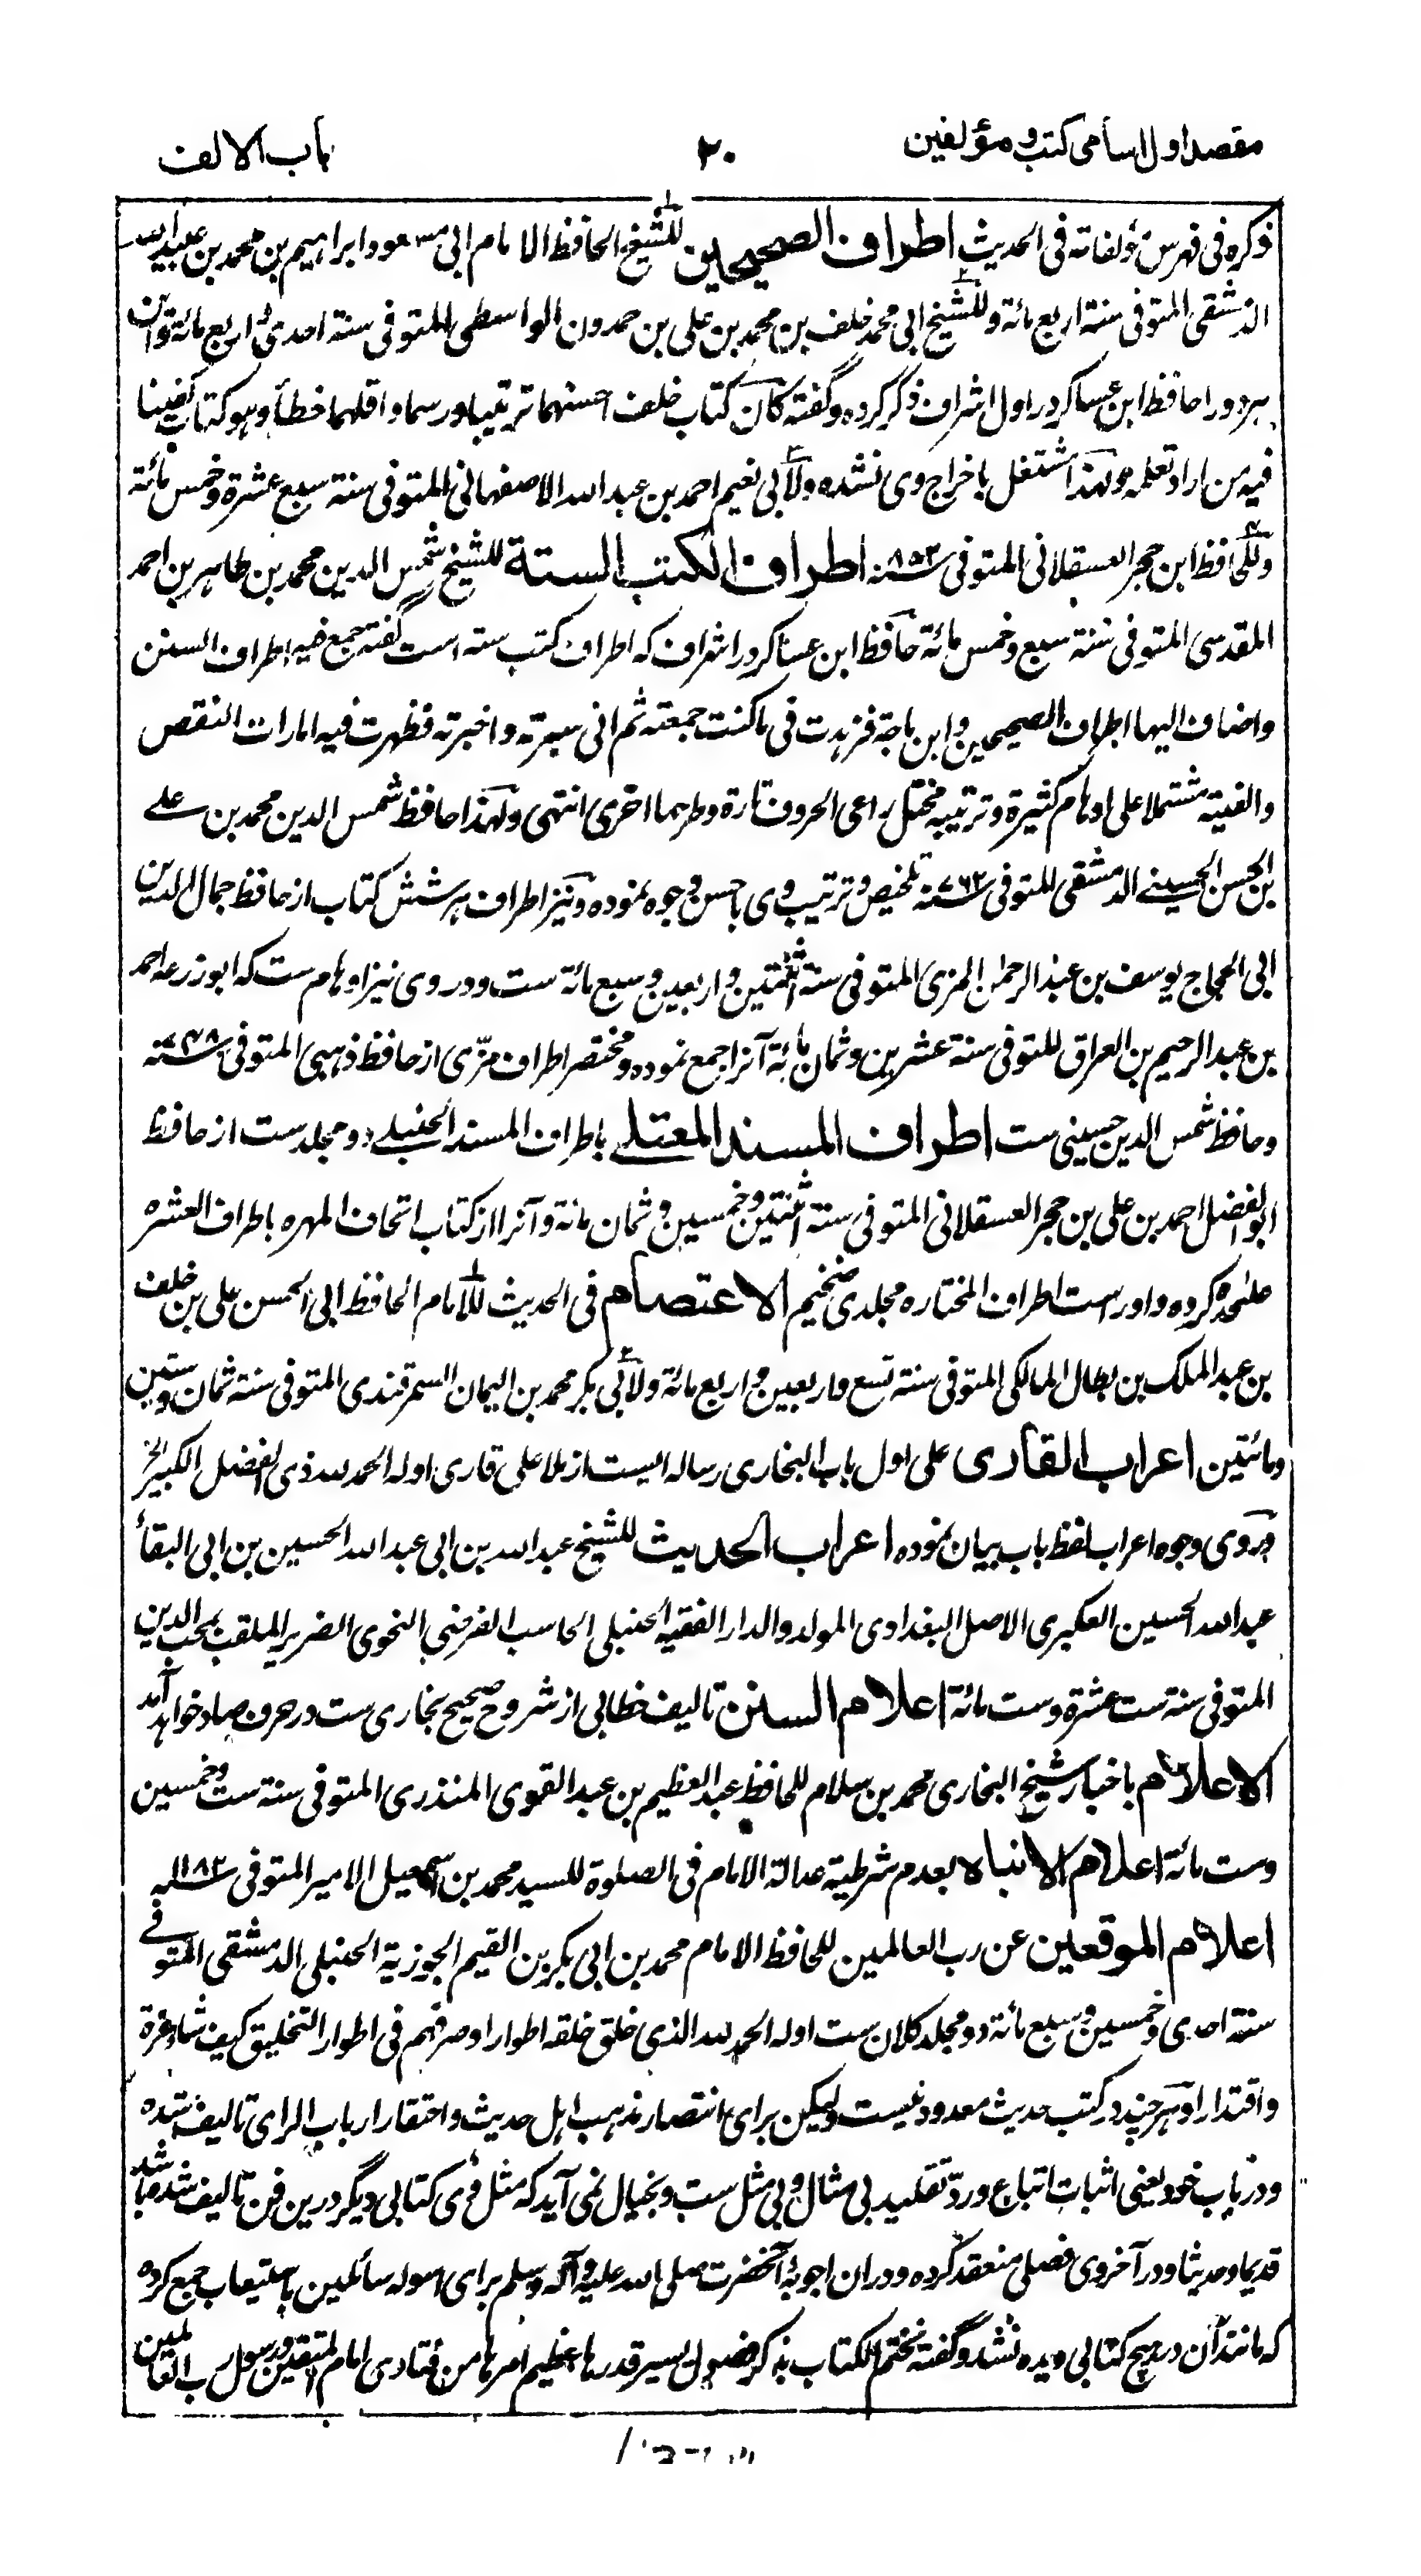 مقصد اول اسامی کتب و مؤلفین
۲۰
باب الالف
ذکره فی فهرس مؤلفاته فی الحدیث اطراف الصحیحین للشیخ الحافظ الامام ابی مسعود ابراهیم بن محمد بن عبید الله
الدمشقی المتوفی سنة اربع مائة وللشیخ ابی محمد خلف بن محمد بن علی بن حمدون الواسطی المتوفی سنة احدی و اربع مائة و این
هر دو را حافظ ابن عساکر در اول اشراف ذکر کرده و گفته کان کتاب خلف احسنهما ترتیبا و رسما و اقلهما خطأ و هو کتاب کفینا
فیه من اراد تعلمه و لهذا اشتغل باخراج وی نشده ولابی نعیم احمد بن عبد الله الاصفهانی المتوفی سنة سبع عشرة و خمس مائة
وللحافظ ابن حجر العسقلانی المتوفی سنه ۸۵۲ اطراف الکتب الستة للشیخ شمس الدین محمد بن طاهر بن احمد
المقدسی المتوفی سنة سبع و خمس مائة حافظ ابن عساکر در اشراف که اطراف کتب سته است گفته جمع فیه اطراف السنن
واضاف الیها اطراف الصحیحین و ابن ماجة فزهدت فی ما کنت جمعته ثم انی سبرته و اختبرته فظهرت فیه امارات النقص
والفیته مشتملا علی اوهام کثیرة و ترتیبه مختل راعی الحروف تارة و طرحها اخری انتهی و لهذا حافظ شمس الدین محمد بن علی
بن الحسن الحسینی الدمشقی المتوفی سنه ۷۶۳ تلخیص و ترتیب وی باحسن وجوه نموده و نیز اطراف هر شش کتاب از حافظ جمال الدین
ابی الحجاج یوسف بن عبد الرحمن المزی المتوفی سنة اثنتین و اربعین و سبع مائة ست و در وی نیز اوهام ست که ابو زرعه احمد
بن عبد الرحیم بن العراق المتوفی سنة عشرین و ثمان مائة آنرا جمع نموده و مختصر اطراف مزّی از حافظ ذهبی المتوفی سنه ۷۴۸
و حافظ شمس الدین حسینی ست اطراف المسند المعتلی باطراف المسند الحنبلی دو مجلد ست از حافظ
ابو الفضل احمد بن علی بن حجر العسقلانی المتوفی سنة اثنتین و خمسین و ثمان مائة و آنرا از کتاب اتحاف المهره باطراف العشره
علٰحده کرده و او راست اطراف المختاره مجلدی ضخیم الاعتصام فی الحدیث للامام الحافظ ابی الحسن علی بن خلف
بن عبد الملک بن بطال المالکی المتوفی سنة تسع و اربعین و اربع مائة ولابی بکر محمد بن الیمان السمرقندی المتوفی سنة ثمان و ستین
ومائتین اعراب القاری علی اول باب البخاری رساله ایست از ملا علی قاری اوله الحمد لله ذی الفضل الکبیر الخ
در وی وجوه اعراب لفظ باب بیان نموده اعراب الحدیث للشیخ عبد الله بن ابی عبد الله الحسین بن ابی البقأ
عبد الله الحسین العکبری الاصل البغدادی المولد والدار الفقیه الحنبلی الحاسب الفرضی النحوی الضریر الملقب بمحب الدین
المتوفی سنة ست عشرة و ست مائة اعلام السنن تالیف خطابی از شروح صحیح بخاری ست در حرف صاد خواهد آمد
الاعلام باخبار شیخ البخاری محمد بن سلام للحافظ عبد العظیم بن عبد القوی المنذری المتوفی سنة ست و خمسین
وست مائة اعلام الانباه بعدم شرطیة عدالة الامام فی الصلوة للسید محمد بن اسمعیل الامیر المتوفی سنه ۱۱۸۲
اعلام الموقعین عن رب العالمین للحافظ الامام محمد بن ابی بکر بن القیم الجوزیة الحنبلی الدمشقی المتوفی
سنة احدی و خمسین و سبع مائة دو مجلد کلان ست اوله الحمد لله الذی خلق خلقه اطوارا و صرفهم فی اطوار التخلیق کیف شاء عزة
واقتدارا و هر چند در کتب حدیث معدود نیست ولیکن برای انتصار مذهب اهل حدیث و احتقار ارباب الرای تالیف شده
و در باب خود یعنی اثبات اتباع و ردّ تقلید بی مثال و بی مثل ست و بخیال نمی آید که مثل وی کتابی دیگر درین فن تالیف شده باشد
قدیما و حدیثا و در آخر وی فصلی منعقد کرده و دران اجوبهٔ آنحضرت صلی الله علیه و آله وسلم برای اسوله سائلین باستیعاب جمع کرده
که مانند آن در هیچ کتابی دیده نشد و گفته نختم الکتاب بذکر فصول یسیر قدرها عظیم امرها من فتاوی امام المتقین و رسول رب العالمین